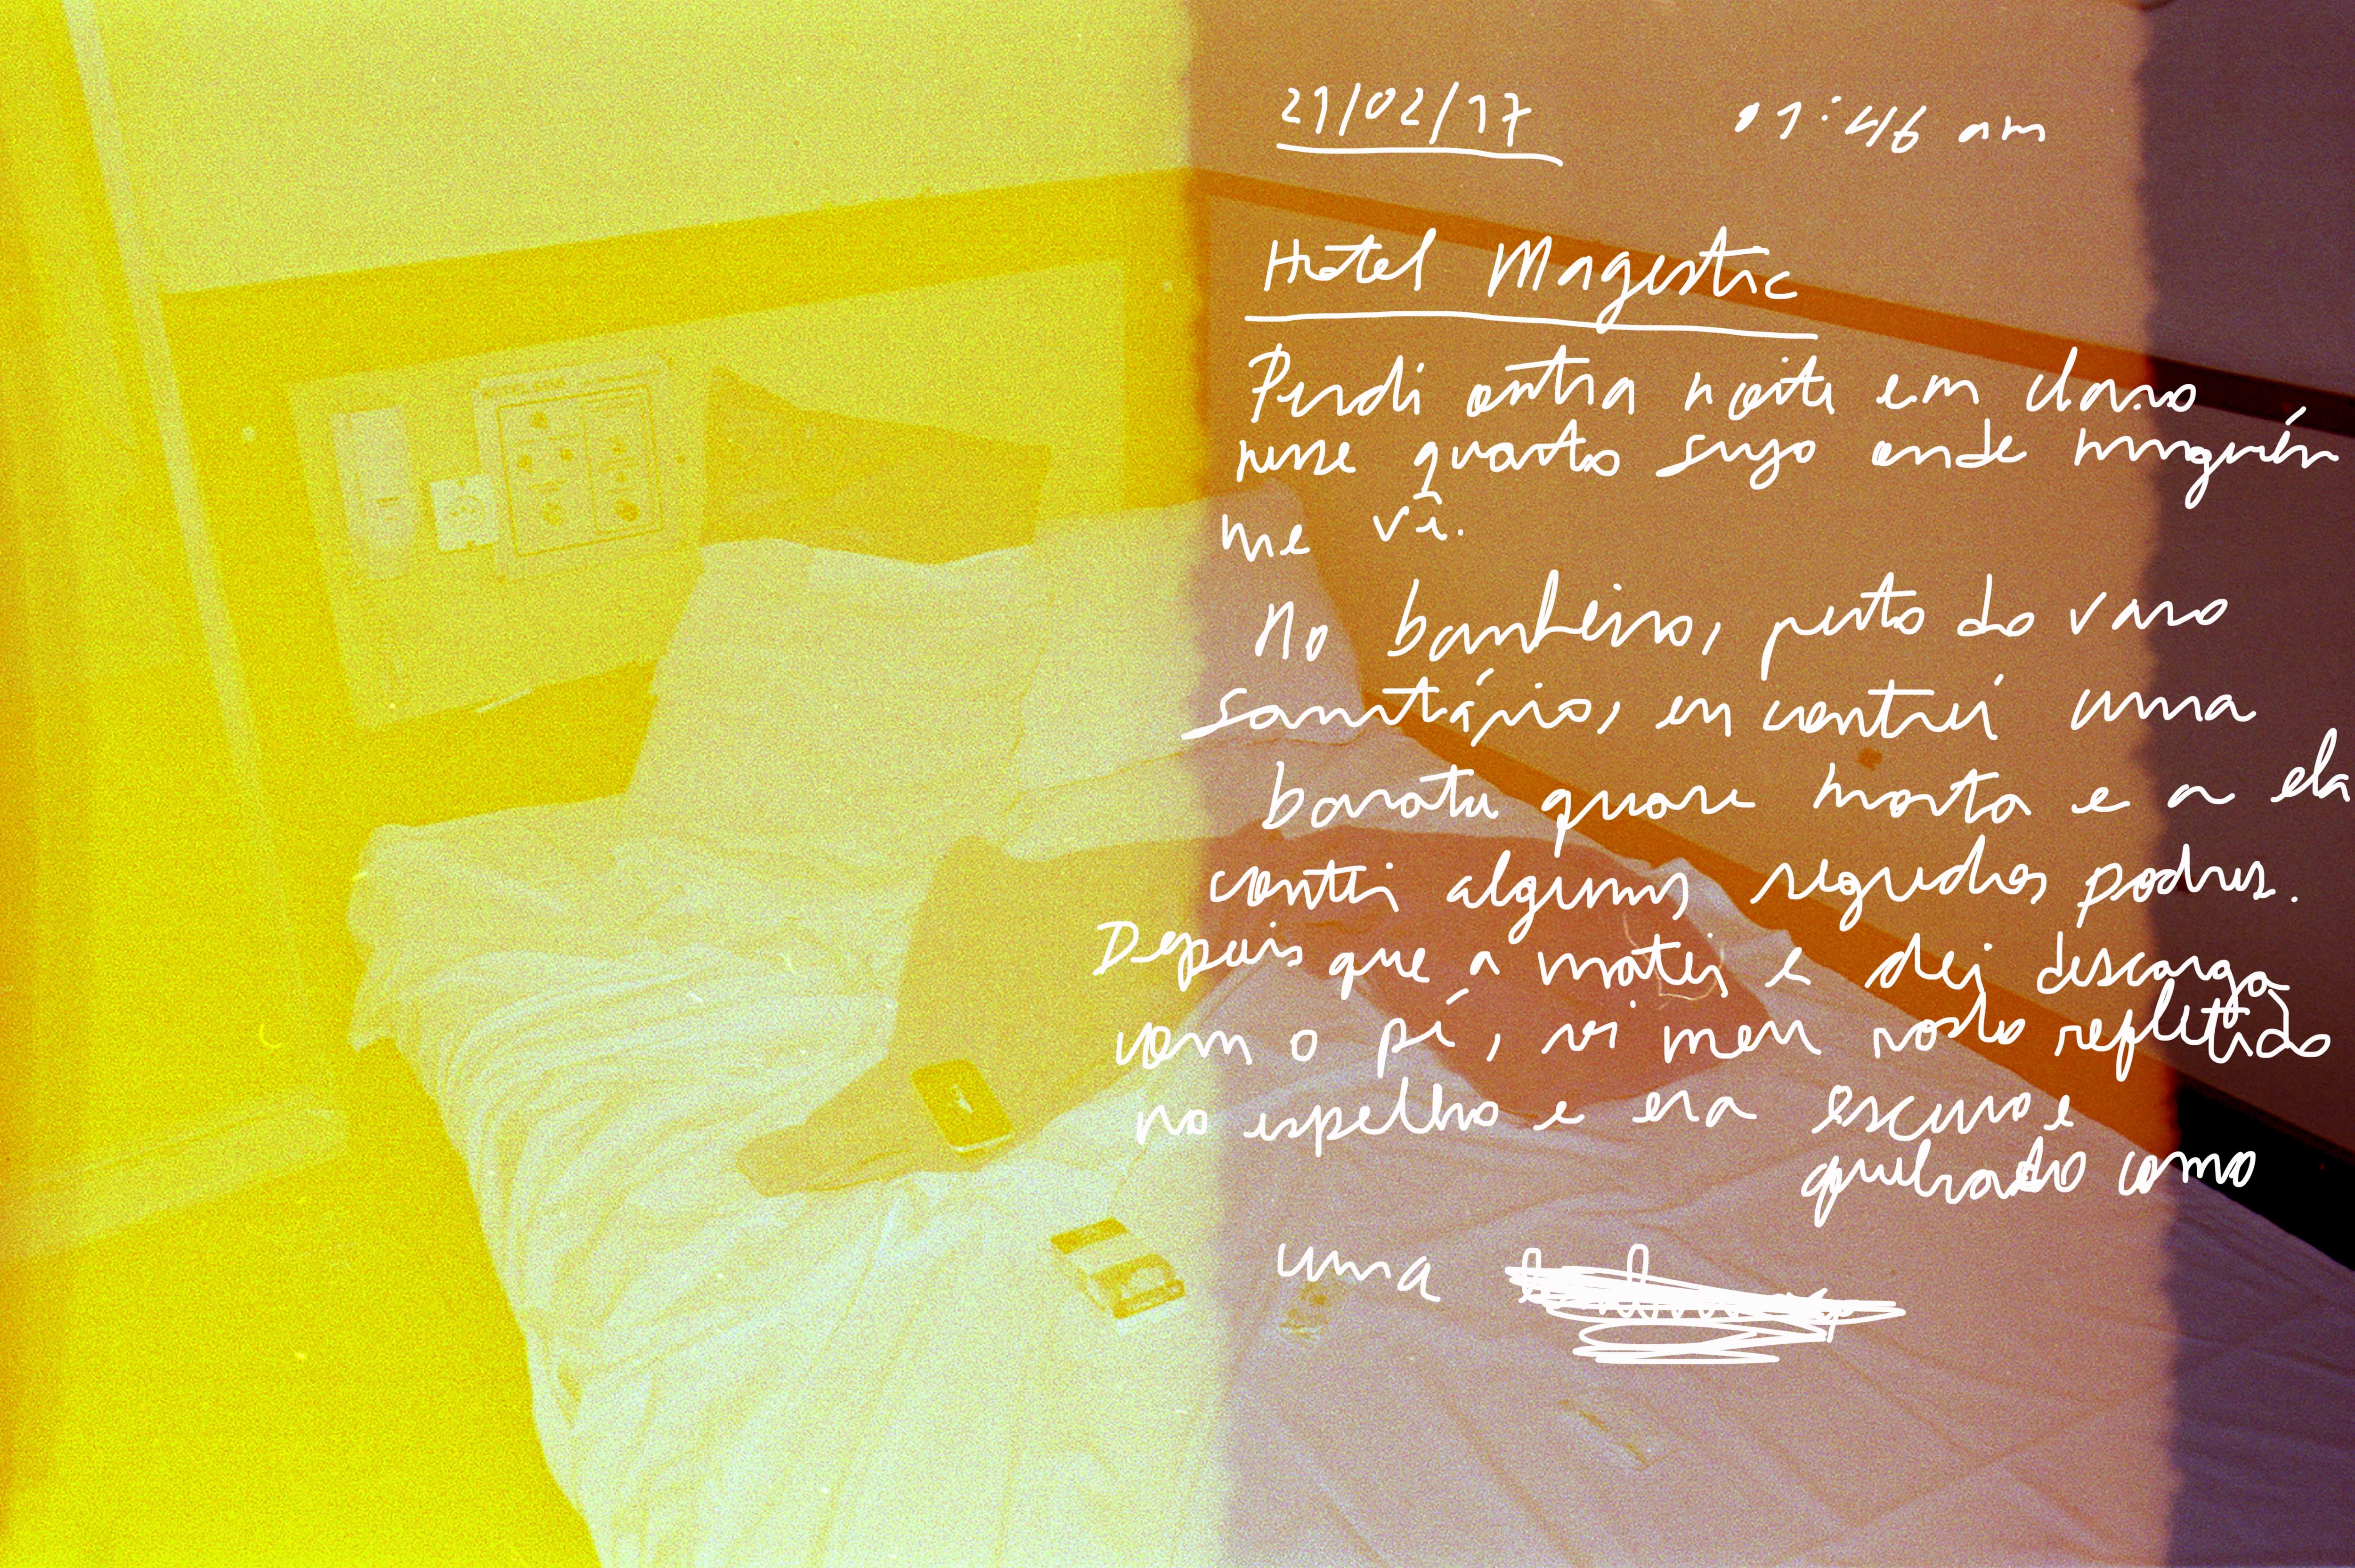 21/02/17 01:46 am
Hotel Magestic
Perdi outra noite em claro
nesse quarto sujo onde ninguém
me vê.
No banheiro, perto do vaso
sanitário, encontrei uma
barata quase morta e a ela
contei alguns segredos podres.
Depois que a matei e dei descarga
com o pé, vi meu rosto refletido
no espelho e era escuro e
quebrado como
uma